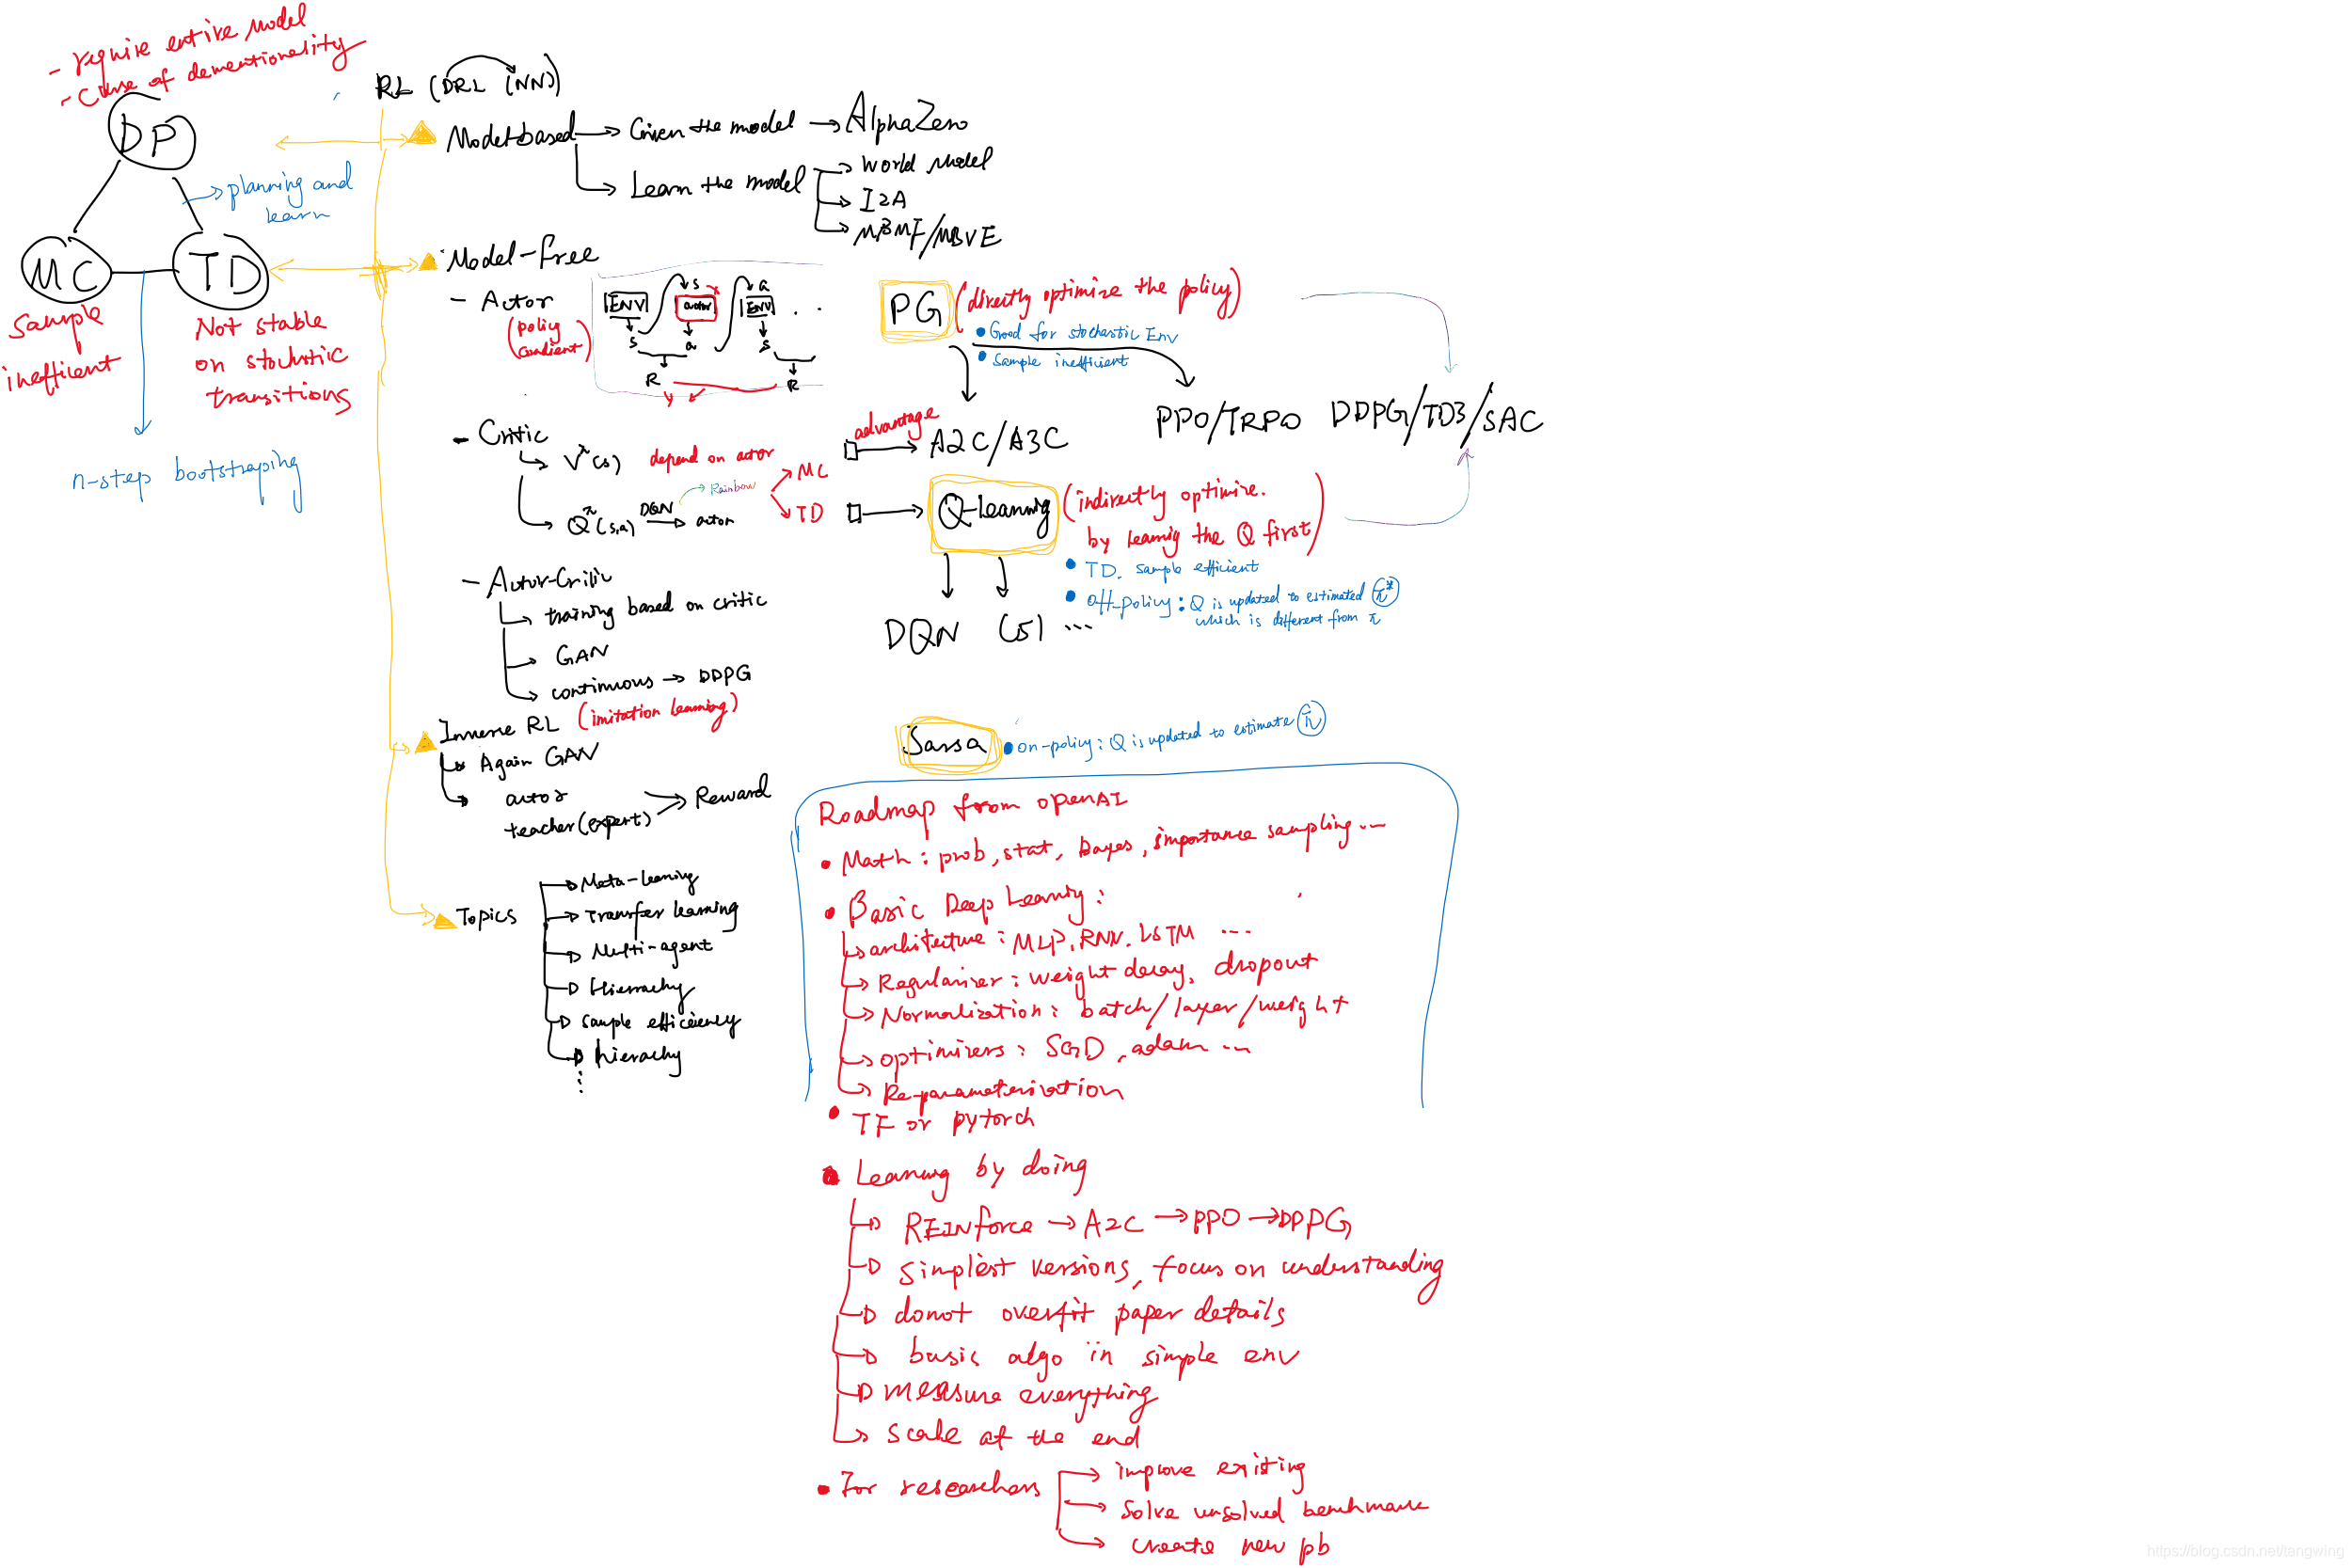 - require entire model
- Curse of dementionality
DP
planning and
learn
MC
TD
Sample
inefficient
Not stable
on stochstic
transitions
n-step bootstraping
RL (DRL (NN)
Model-based
Given the model
AlphaZero
Learn the model
World Model
I2A
MBMF/MBVE
Model-free
- Actor
(policy
Gradient)
ENV
s
actor
a
ENV
...
s
a
s
R
R
- Critic
V^π(s)
depend on actor
Q^π(s,a)
DQN
actor
Rainbow
MC
TD
- Actor-Critic
training based on critic
GAN
continuous → DDPG
Inverse RL (imitation learning)
Again GAN
actor
teacher (expert)
Reward
Topics
Meta-learning
Transfer learning
Multi-agent
Hierachy
sample efficiency
hierachy
⋮
PG (directly optimize the policy)
• Good for stochastic Env
• Sample inefficient
advantage
A2C/A3C
PPO/TRPO
DDPG/TD3/SAC
Q-Learning (indirectly optimize.
by learning the Q first)
• TD. sample efficient
• off-policy: Q is updated to estimated π*
which is different from π
DQN
C51 ...
Sarsa
• on-policy: Q is updated to estimate π
Roadmap from openAI
• Math: prob, stat, bayes, importance sampling ...
• Basic Deep Learning:
architecture: MLP, RNN. LSTM ...
Regularizer: weight decay, dropout
Normalization: batch/layer/weight
optimizers: SGD, adam ...
Re-parameterization
• TF or pytorch
• Learning by doing
REINforce → A2C → PPO → DDPG
simplest versions, focus on understanding
donot overfit paper details
basic algo in simple env
measure everything
scale at the end
• For researchers
improve existing
solve unsolved benchmark
create new pb
https://blog.csdn.net/tangwing